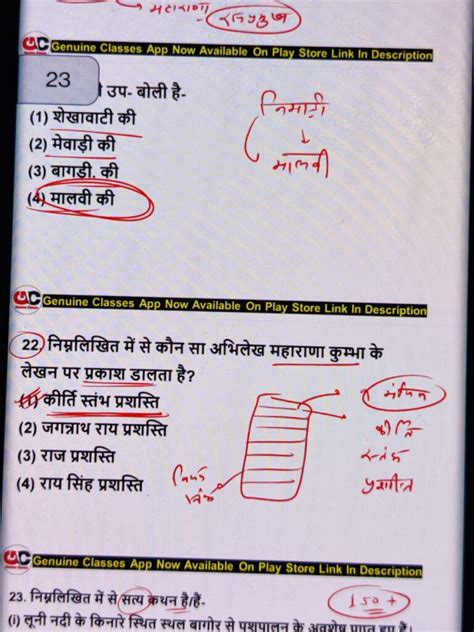 महाराणा
Genuine Classes App Now Available On Play Store Link In Description
23
उप- बोली है-
(1) शेखावाटी की
(2) मेवाड़ी की
(3) बागड़ी. की
(4) मालवी की
निमाड़ी
मालवी
Genuine Classes App Now Available On Play Store Link In Description
22. निम्नलिखित में से कौन सा अभिलेख महाराणा कुम्भा के
लेखन पर प्रकाश डालता है?
(1) कीर्ति स्तंभ प्रशस्ति
(2) जगन्नाथ राय प्रशस्ति
(3) राज प्रशस्ति
(4) राय सिंह प्रशस्ति
कीर्ति
स्तंभ
प्रशस्ति
Genuine Classes App Now Available On Play Store Link In Description
23. निम्नलिखित में से सत्य कथन है/हैं-
150+
(i) लूनी नदी के किनारे स्थित स्थल बागोर से पशुपालन के अवशेष प्राप्त हुए हैं।